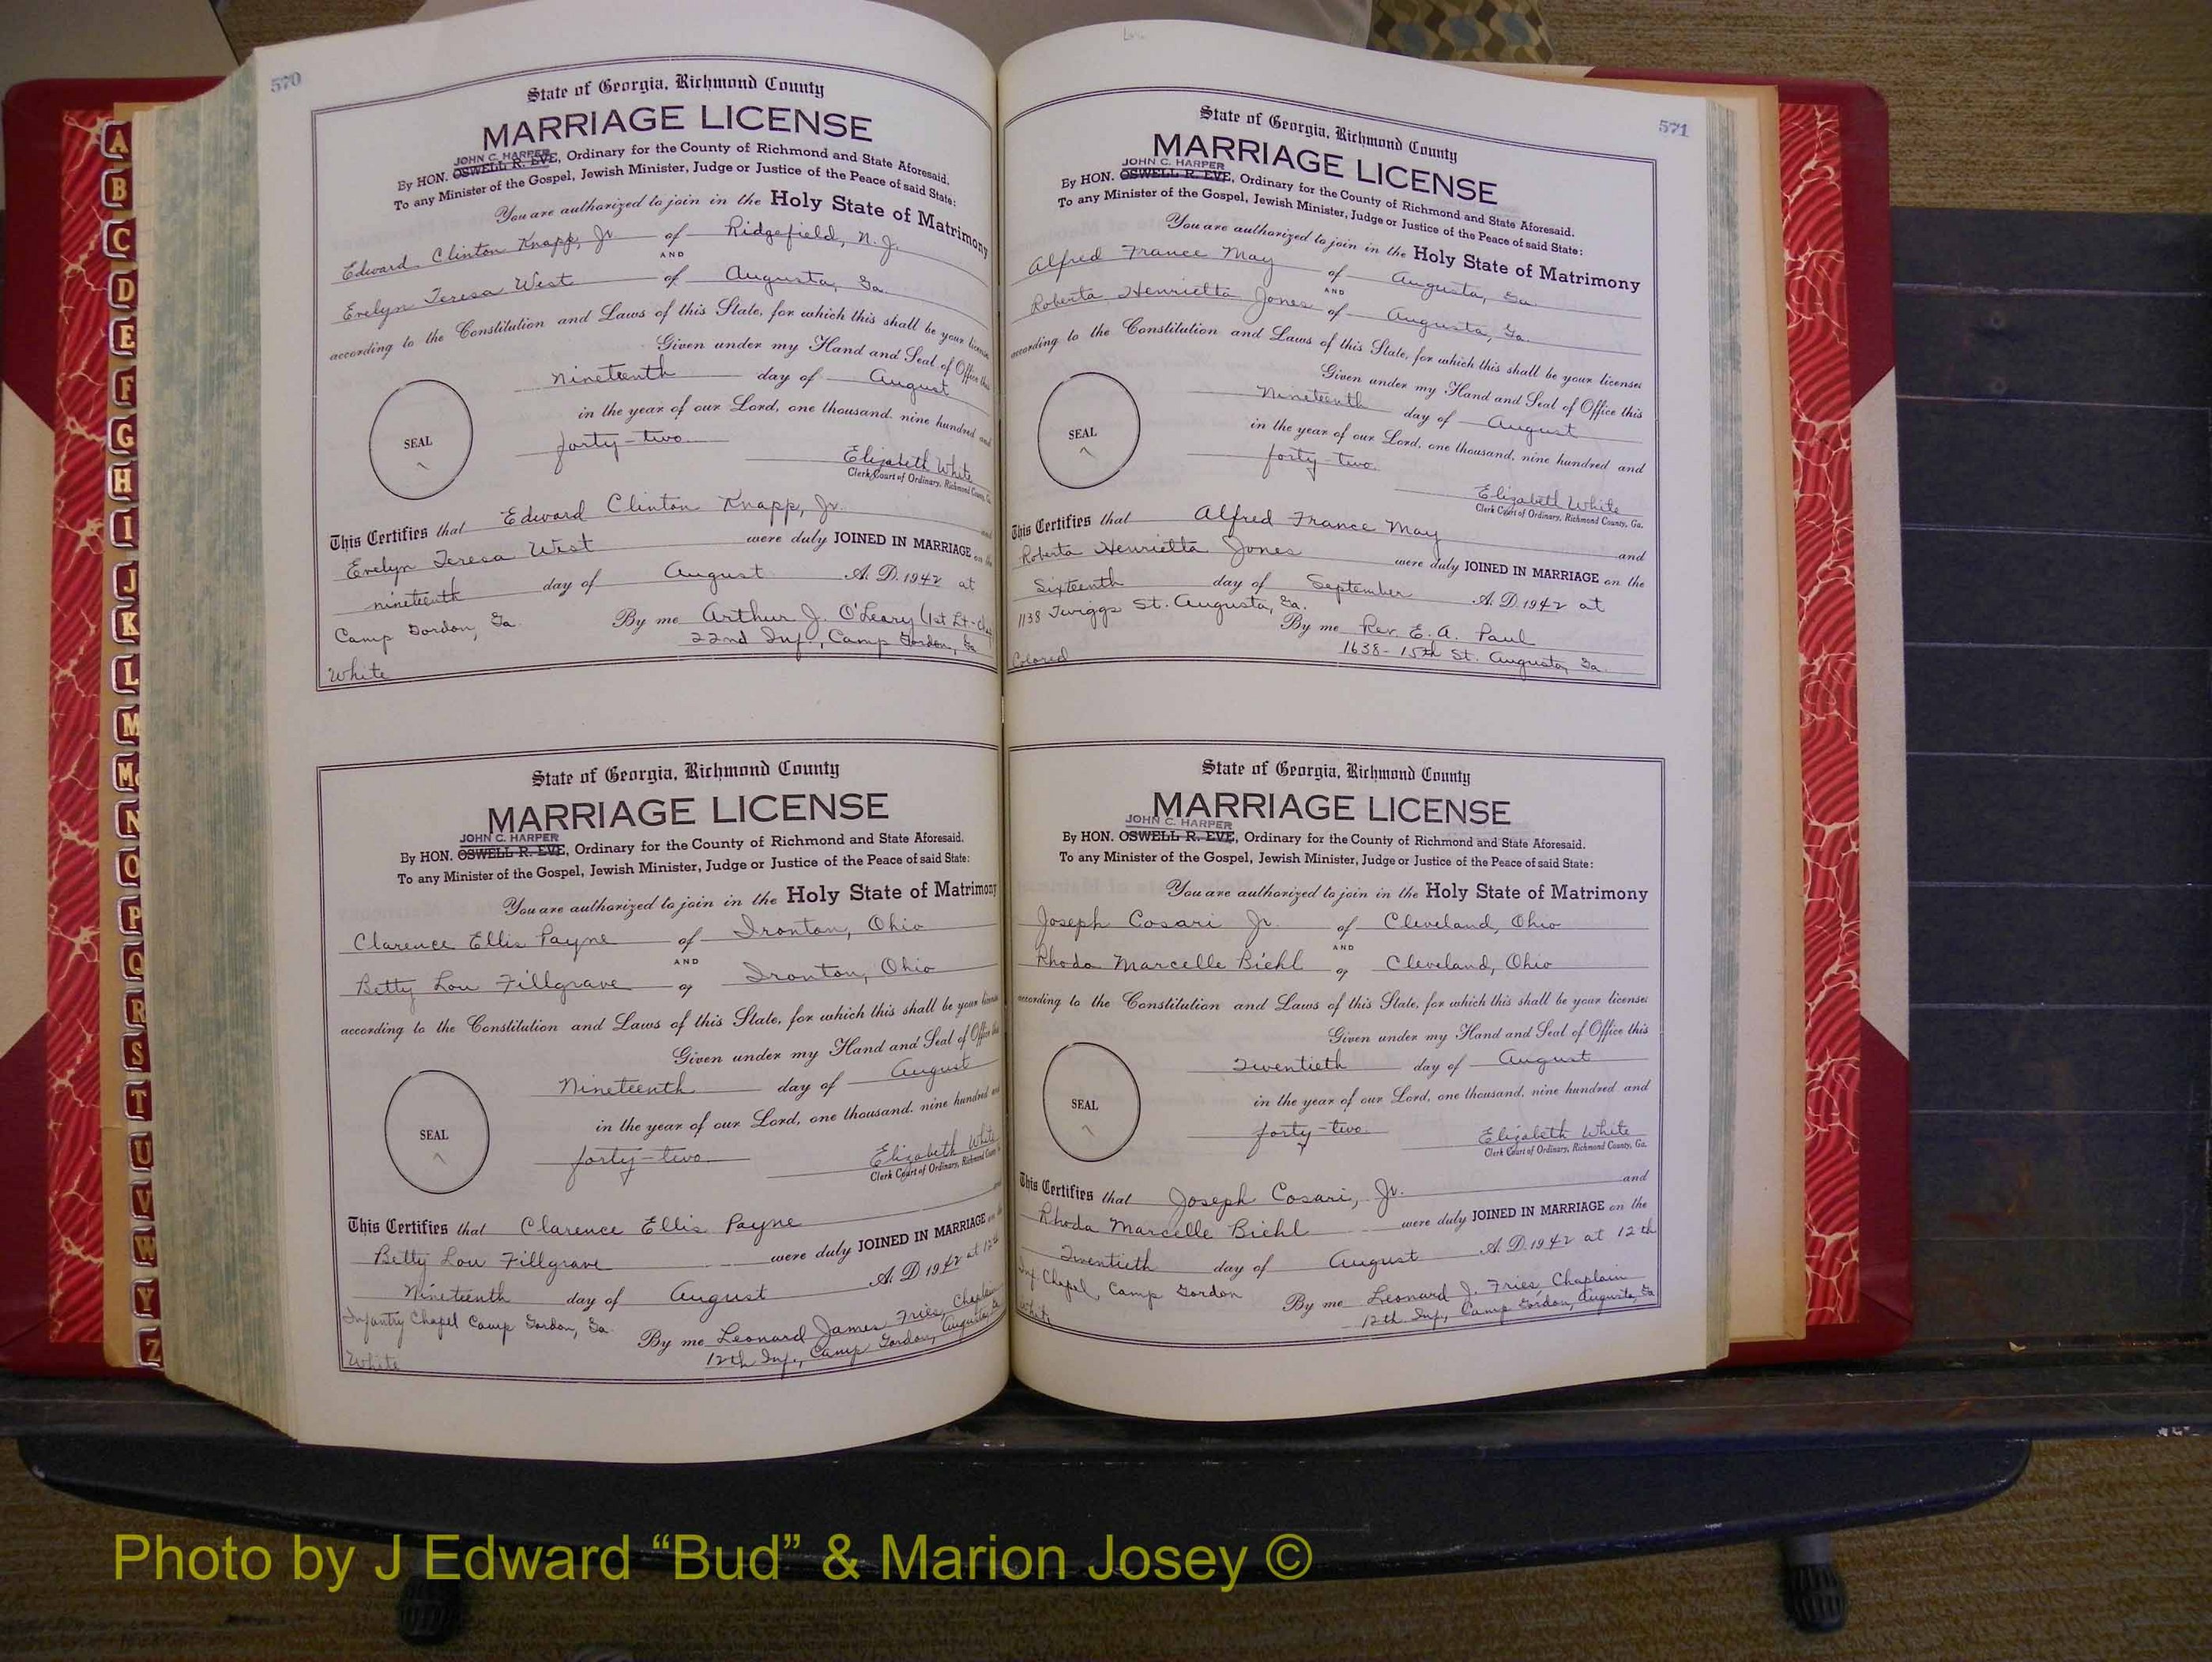 570
State of Georgia, Richmond County
MARRIAGE LICENSE
JOHN C. HARPER
By HON. OSWELL R. EVE, Ordinary for the County of Richmond and State Aforesaid.
To any Minister of the Gospel, Jewish Minister, Judge or Justice of the Peace of said State:
You are authorized to join in the Holy State of Matrimony
Edward Clinton Knapp, Jr. of Ridgefield, N. J.
AND
Evelyn Teresa West of Augusta, Ga.
according to the Constitution and Laws of this State, for which this shall be your license
Given under my Hand and Seal of Office this
nineteenth day of August
in the year of our Lord, one thousand, nine hundred and
SEAL
forty-two
Elizabeth White
Clerk Court of Ordinary, Richmond County, Ga.
This Certifies that Edward Clinton Knapp, Jr. and
Evelyn Teresa West were duly JOINED IN MARRIAGE on the
nineteenth day of August A. D. 1942 at
Camp Gordon, Ga. By me Arthur J. O'Leary (1st Lt-
22nd Inf., Camp Gordon, Ga
White
State of Georgia, Richmond County
MARRIAGE LICENSE
JOHN C. HARPER
By HON. OSWELL R. EVE, Ordinary for the County of Richmond and State Aforesaid.
To any Minister of the Gospel, Jewish Minister, Judge or Justice of the Peace of said State:
You are authorized to join in the Holy State of Matrimony
Clarence Ellis Payne of Ironton, Ohio
AND
Betty Lou Fillgrave of Ironton, Ohio
according to the Constitution and Laws of this State, for which this shall be your license
Given under my Hand and Seal of Office this
Nineteenth day of August
in the year of our Lord, one thousand, nine hundred and
SEAL
forty-two
Elizabeth White
Clerk Court of Ordinary, Richmond County
and
This Certifies that Clarence Ellis Payne
Betty Lou Fillgrave were duly JOINED IN MARRIAGE on the
Nineteenth day of August A. D. 1942 at 12th
Infantry Chapel Camp Gordon, Ga. By me Leonard James Fries, Chaplain
12th Inf., Camp Gordon, Augusta, Ga
White
571
State of Georgia, Richmond County
MARRIAGE LICENSE
JOHN C. HARPER
By HON. OSWELL R. EVE, Ordinary for the County of Richmond and State Aforesaid.
To any Minister of the Gospel, Jewish Minister, Judge or Justice of the Peace of said State:
You are authorized to join in the Holy State of Matrimony
Alfred France May of Augusta, Ga.
AND
Roberta Henrietta Jones of Augusta, Ga.
according to the Constitution and Laws of this State, for which this shall be your license
Given under my Hand and Seal of Office this
Nineteenth day of August
in the year of our Lord, one thousand, nine hundred and
SEAL
forty-two
Elizabeth White
Clerk Court of Ordinary, Richmond County, Ga.
This Certifies that Alfred France May and
Roberta Henrietta Jones were duly JOINED IN MARRIAGE on the
Sixteenth day of September A. D. 1942 at
1138 Twiggs St. Augusta, Ga. By me Rev. E. A. Paul
1638-15th St. Augusta, Ga.
Colored
State of Georgia, Richmond County
MARRIAGE LICENSE
JOHN C. HARPER
By HON. OSWELL R. EVE, Ordinary for the County of Richmond and State Aforesaid.
To any Minister of the Gospel, Jewish Minister, Judge or Justice of the Peace of said State:
You are authorized to join in the Holy State of Matrimony
Joseph Cosari Jr. of Cleveland, Ohio
AND
Rhoda Marcelle Biehl of Cleveland, Ohio
according to the Constitution and Laws of this State, for which this shall be your license
Given under my Hand and Seal of Office this
Twentieth day of August
in the year of our Lord, one thousand, nine hundred and
SEAL
forty-two
Elizabeth White
Clerk Court of Ordinary, Richmond County, Ga.
This Certifies that Joseph Cosari, Jr. and
Rhoda Marcelle Biehl were duly JOINED IN MARRIAGE on the
Twentieth day of August A. D. 1942 at 12th
Inf. Chapel, Camp Gordon By me Leonard J. Fries, Chaplain
12th Inf., Camp Gordon, Augusta, Ga
White
A
B
C
D
E
F
G
H
I
J
K
L
M
Mc
N
O
P
Q
R
S
T
U
V
W
Y
Z
Photo by J Edward “Bud” & Marion Josey ©